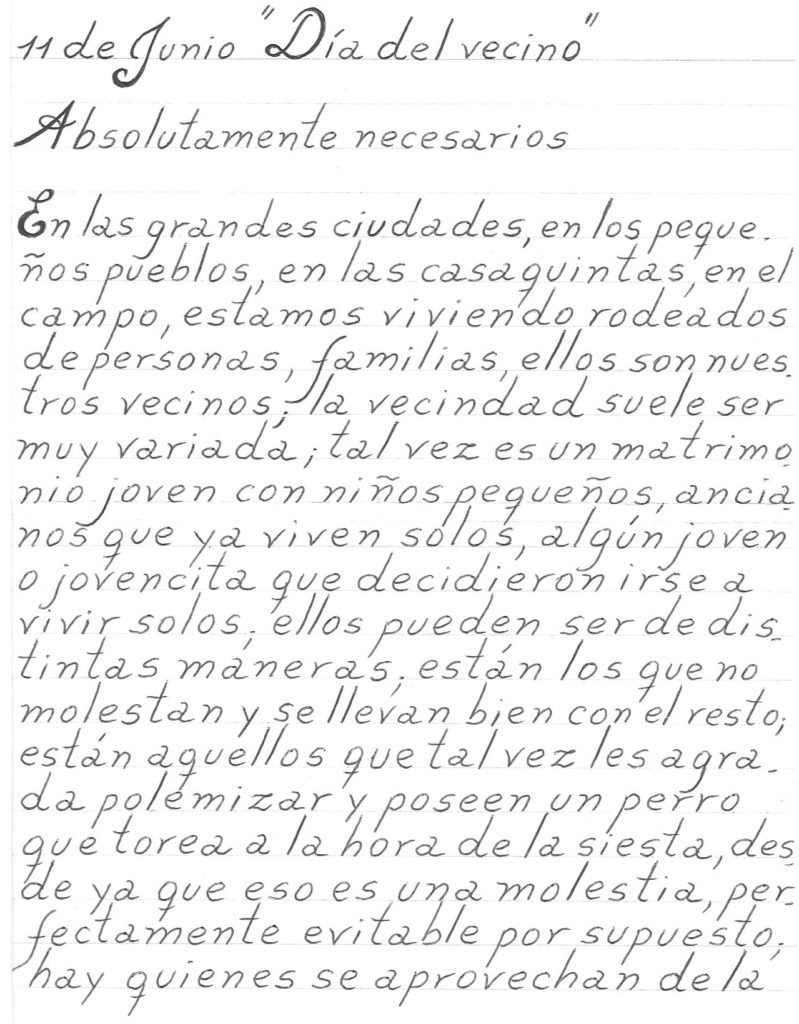 11 de Junio "Día del vecino"
Absolutamente necesarios
En las grandes ciudades, en los peque-
ños pueblos, en las casaquintas, en el
campo, estamos viviendo rodeados
de personas, familias, ellos son nues-
tros vecinos; la vecindad suele ser
muy variada; tal vez es un matrimo-
nio joven con niños pequeños, ancia-
nos que ya viven solos, algún joven
o jovencita que decidieron irse a
vivir solos; ellos pueden ser de dis-
tintas maneras; están los que no
molestan y se llevan bien con el resto;
están aquellos que tal vez les agra-
da polemizar y poseen un perro
que torea a la hora de la siesta, des-
de ya que eso es una molestia, per-
fectamente evitable por supuesto;
hay quienes se aprovechan de la